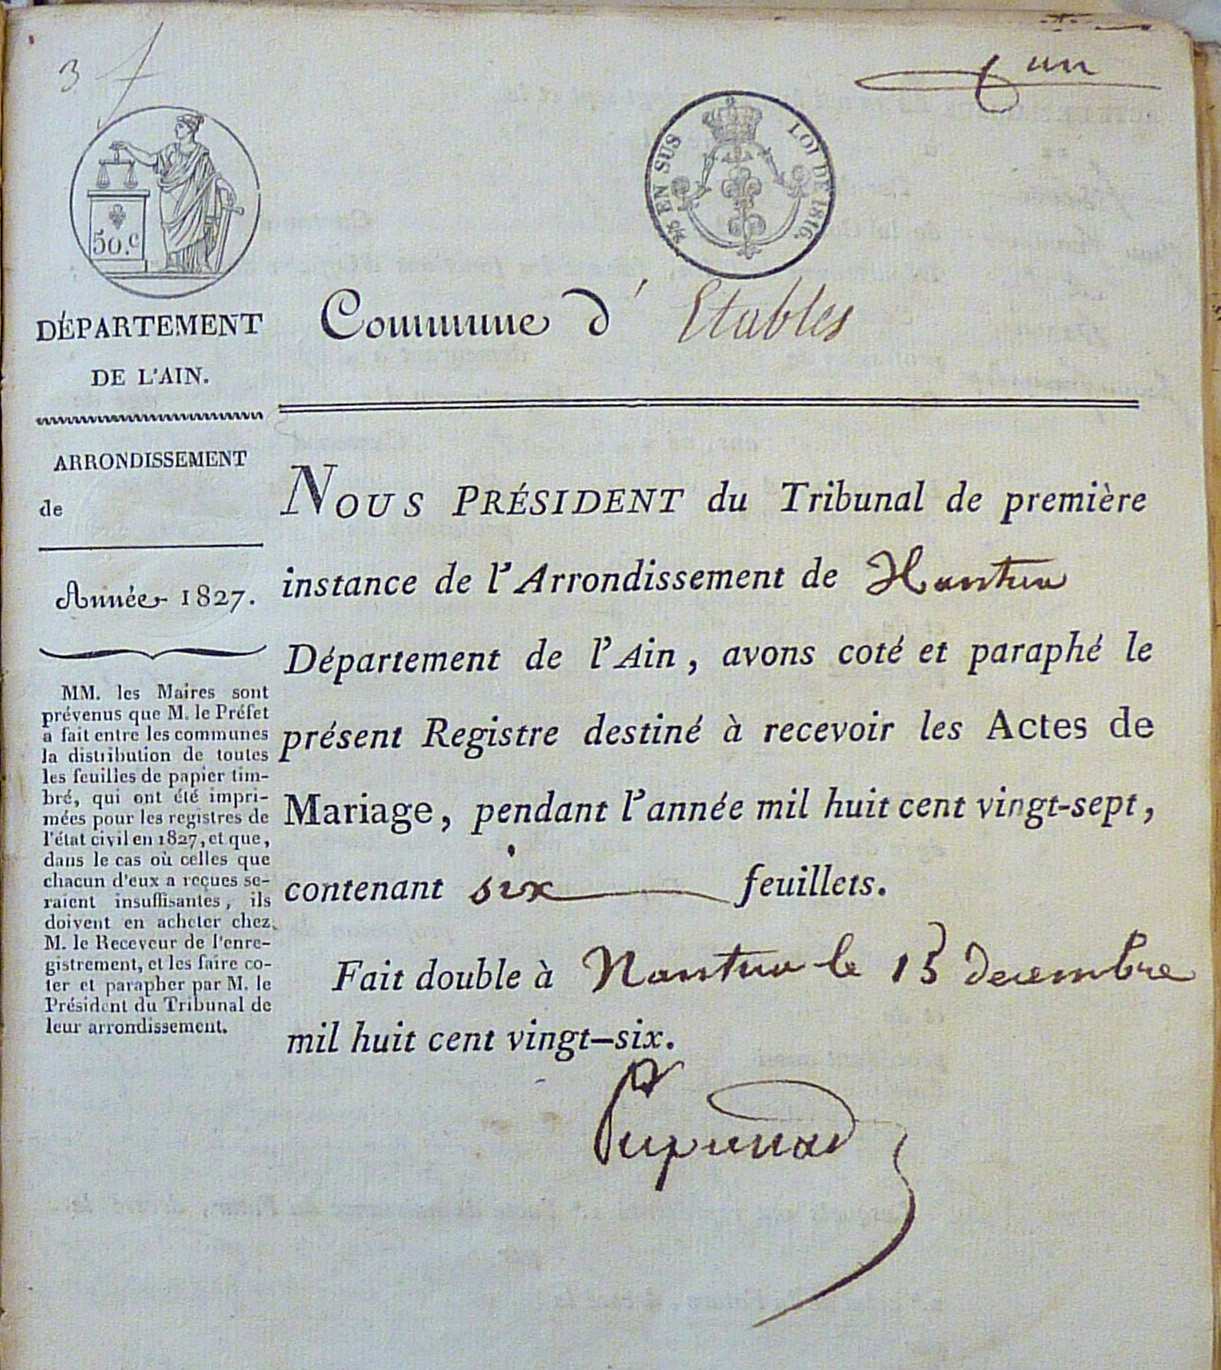 3
un
50.c
EN SUS
LOI DE 1816.
DÉPARTEMENT
DE L'AIN.
Commune d' Etables
ARRONDISSEMENT
de
Année 1827.
MM. les Maires sont
prévenus que M. le Préfet
a fait entre les communes
la distribution de toutes
les feuilles de papier tim-
bré, qui ont été impri-
mées pour les registres de
l'état civil en 1827, et que,
dans le cas où celles que
chacun d'eux a reçues se-
raient insuffisantes, ils
doivent en acheter chez
M. le Receveur de l'enre-
gistrement, et les faire co-
ter et parapher par M. le
Président du Tribunal de
leur arrondissement.
NOUS PRÉSIDENT du Tribunal de première
instance de l'Arrondissement de Nantua
Département de l'Ain, avons coté et paraphé le
présent Registre destiné à recevoir les Actes de
Mariage, pendant l'année mil huit cent vingt-sept,
contenant six feuillets.
Fait double à Nantua le 15 decembre
mil huit cent vingt-six.